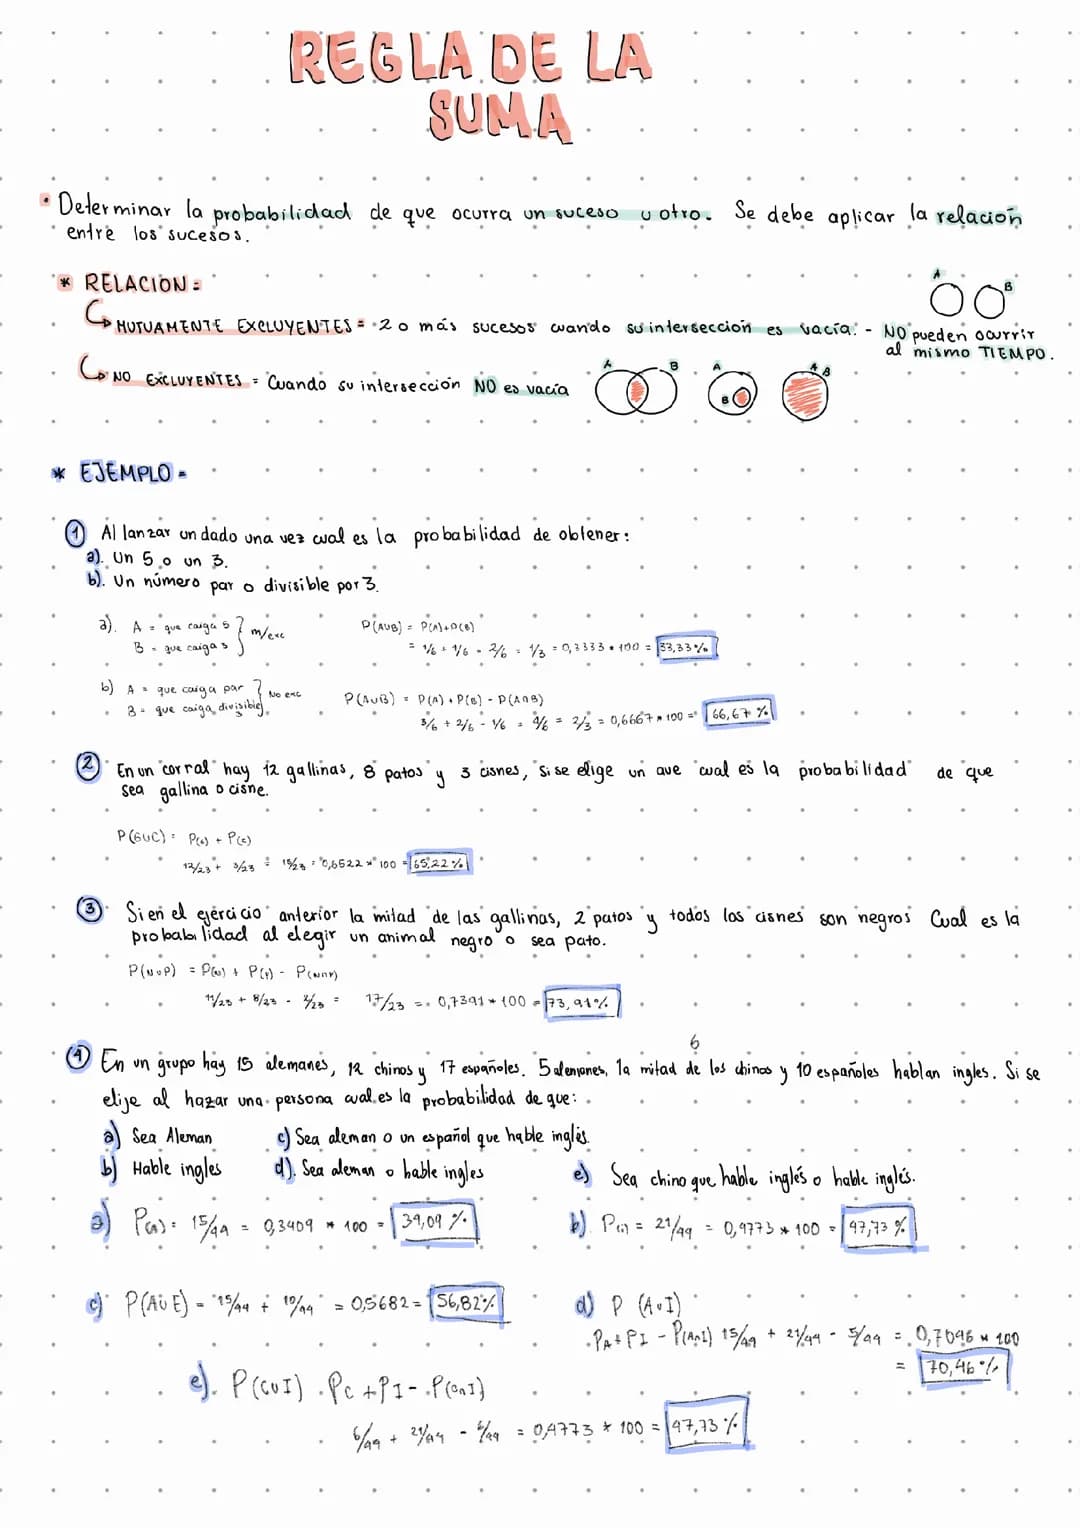 REGLA DE LA
SUMA
• Determinar la probabilidad de que ocurra un suceso u otro. Se debe aplicar la relación
entre los sucesos.
* RELACION =
A
B
↳ MUTUAMENTE EXCLUYENTES = 2 o más sucesos cuando su intersección es vacía. - NO pueden ocurrir
al mismo TIEMPO.
↳ NO EXCLUYENTES = Cuando su intersección NO es vacía
A B A B A B
* EJEMPLO =
① Al lanzar un dado una vez cual es la probabilidad de obtener:
a). Un 5 o un 3.
b). Un número par o divisible por 3.
a). A = que caiga 5 } m/exc
B = que caiga 3
P(AUB) = P(A)+P(B)
= 1/6 + 1/6 = 2/6 = 1/3 = 0,3333 * 100 = 33,33%
b) A = que caiga par } No exc
B = que caiga divisible
P(AUB) = P(A) + P(B) - P(A∩B)
3/6 + 2/6 - 1/6 = 4/6 = 2/3 = 0,6667 * 100 = 66,67 %
② En un corral hay 12 gallinas, 8 patos y 3 cisnes, si se elige un ave cual es la probabilidad de que
sea gallina o cisne.
P(GUC) = P(G) + P(C)
12/23 + 3/23 = 15/23 = 0,6522 * 100 = 65,22%
③ Si en el ejercicio anterior la mitad de las gallinas, 2 patos y todos los cisnes son negros Cual es la
probabilidad al elegir un animal negro o sea pato.
P(NUP) = P(N) + P(P) - P(N∩P)
11/23 + 8/23 - 2/23 = 17/23 = 0,7391 * 100 = 73,91%
6
④ En un grupo hay 15 alemanes, 12 chinos y 17 españoles. 5 alemanes, la mitad de los chinos y 10 españoles hablan ingles. Si se
elije al hazar una persona cual es la probabilidad de que:
a) Sea Aleman c) Sea aleman o un español que hable inglés.
b) Hable ingles d). Sea aleman o hable ingles e) Sea chino que hable inglés o hable inglés.
a) P(A) = 15/44 = 0,3409 * 100 = 34,09 % b). P(I) = 21/44 = 0,4773 * 100 = 47,73 %
c) P(AUE) = 15/44 + 10/44 = 0,5682 = 56,82% d) P (AUI)
PA + PI - P(A∩I) 15/44 + 21/44 - 5/44 = 0,7046 * 100
= 70,46 %
e). P(CUI) PC + PI - P(C∩I)
6/44 + 21/44 - 6/44 = 0,4773 * 100 = 47,73 %